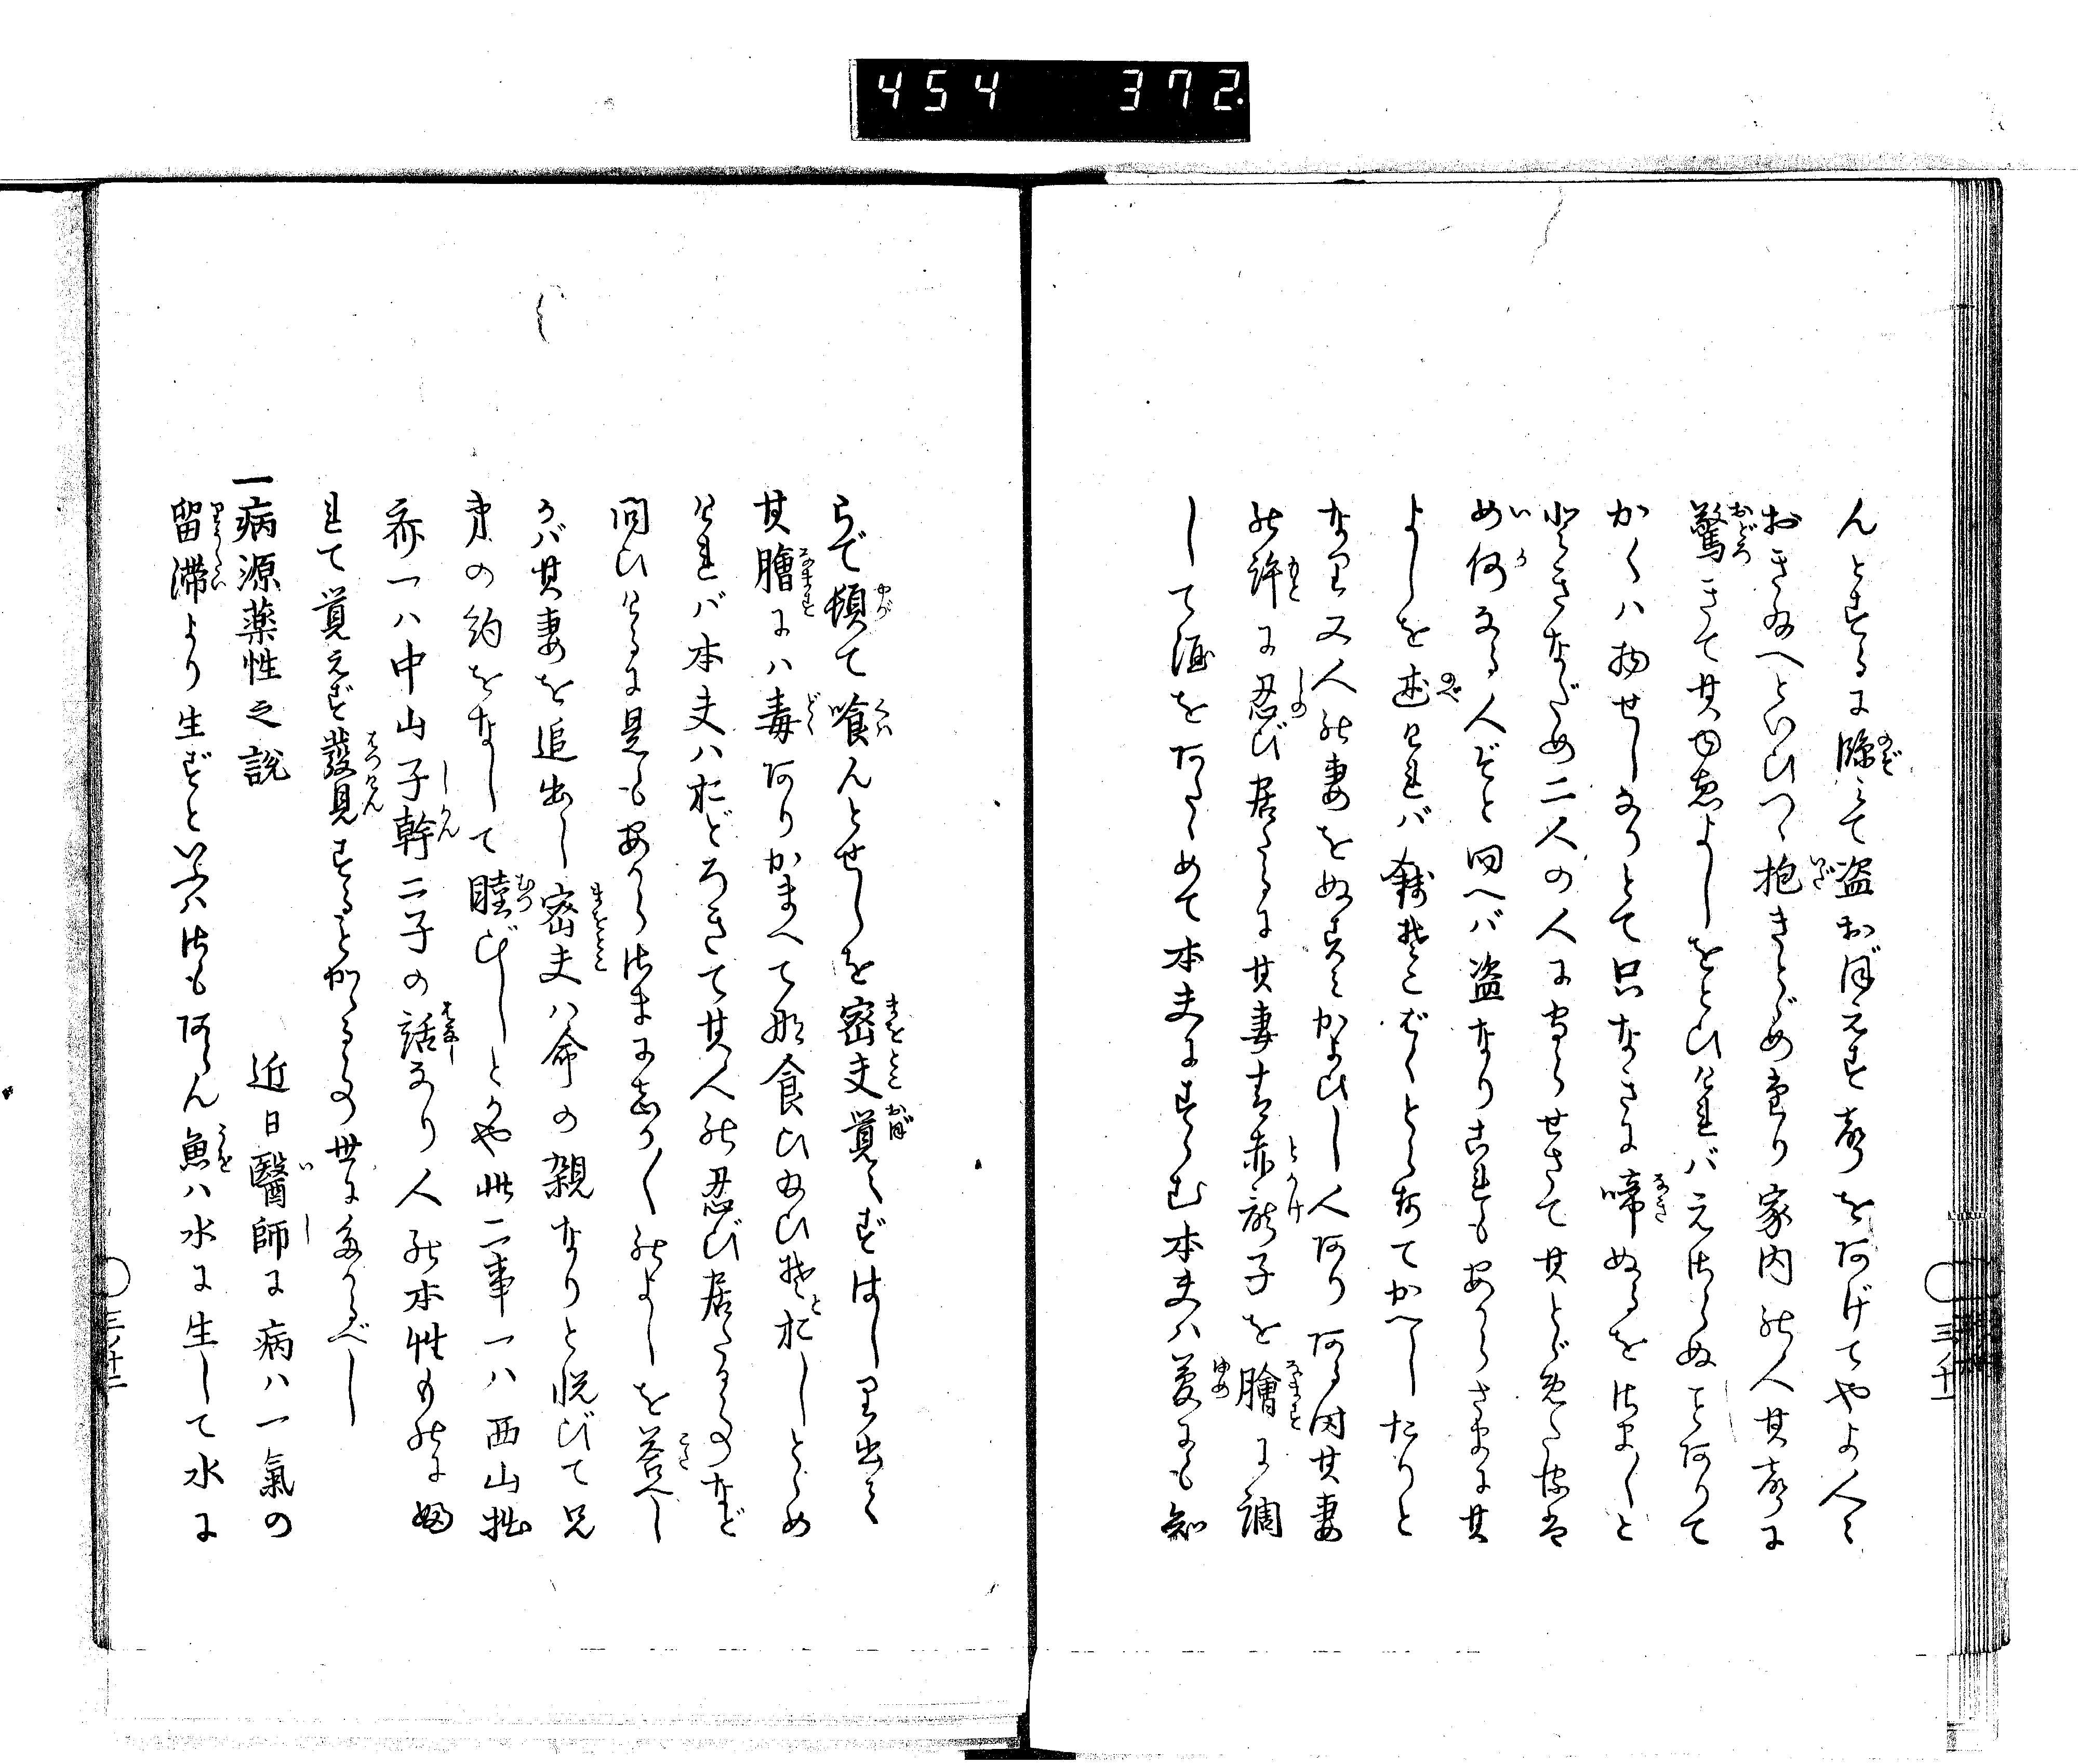 454 372.
んとするに臨て盗おぼえず声をあげてやよ人々
おきねへといひつゝ抱きとゞめ〓り家内の人其声に
驚きて其ゆゑよしをとひければえ〓らぬことありて
かくハ物せしなりとて只なきに啼ぬるを〓まゞと
ときなだめ二人の人に〓らせさて其とゞめた〓〓
め何なる人ぞと問へバ盗なりこれもあからさまに其
よしを述ければ錢そこばくとらせてかへしたりと
なり又人の妻をぬすみかよひし人あり ある時其妻
の許に忍び居たるに其妻赤〓子を膾に調
して酒をあたゝめて本夫にすゝむ本夫ハ夢にも知
らで頓て喰んとせしを密夫覚えずはしり出て
其膾にハ毒ありかまへてな食ひ給ひそとおしとゞめ
ければ本夫ハおどろきて其人の忍び居たる事など
問ひけるに是もあからさまにしか〳〵のよしを答へし
かバ其妻を追出し密夫ハ命の親なりと悦びて兄
弟の約をなして睦びしとかや此二事一ハ西山拙
斎一ハ中山子幹二子の話なり人の本性ものに婦
れて覚えず發見することかゝる事世に多かるべし
一病源薬性之説 近日醫師に病ハ一氣の
留滞より生ずといふハ〓もあらん魚ハ水に生して水に
三ノ十一
三ノ十二